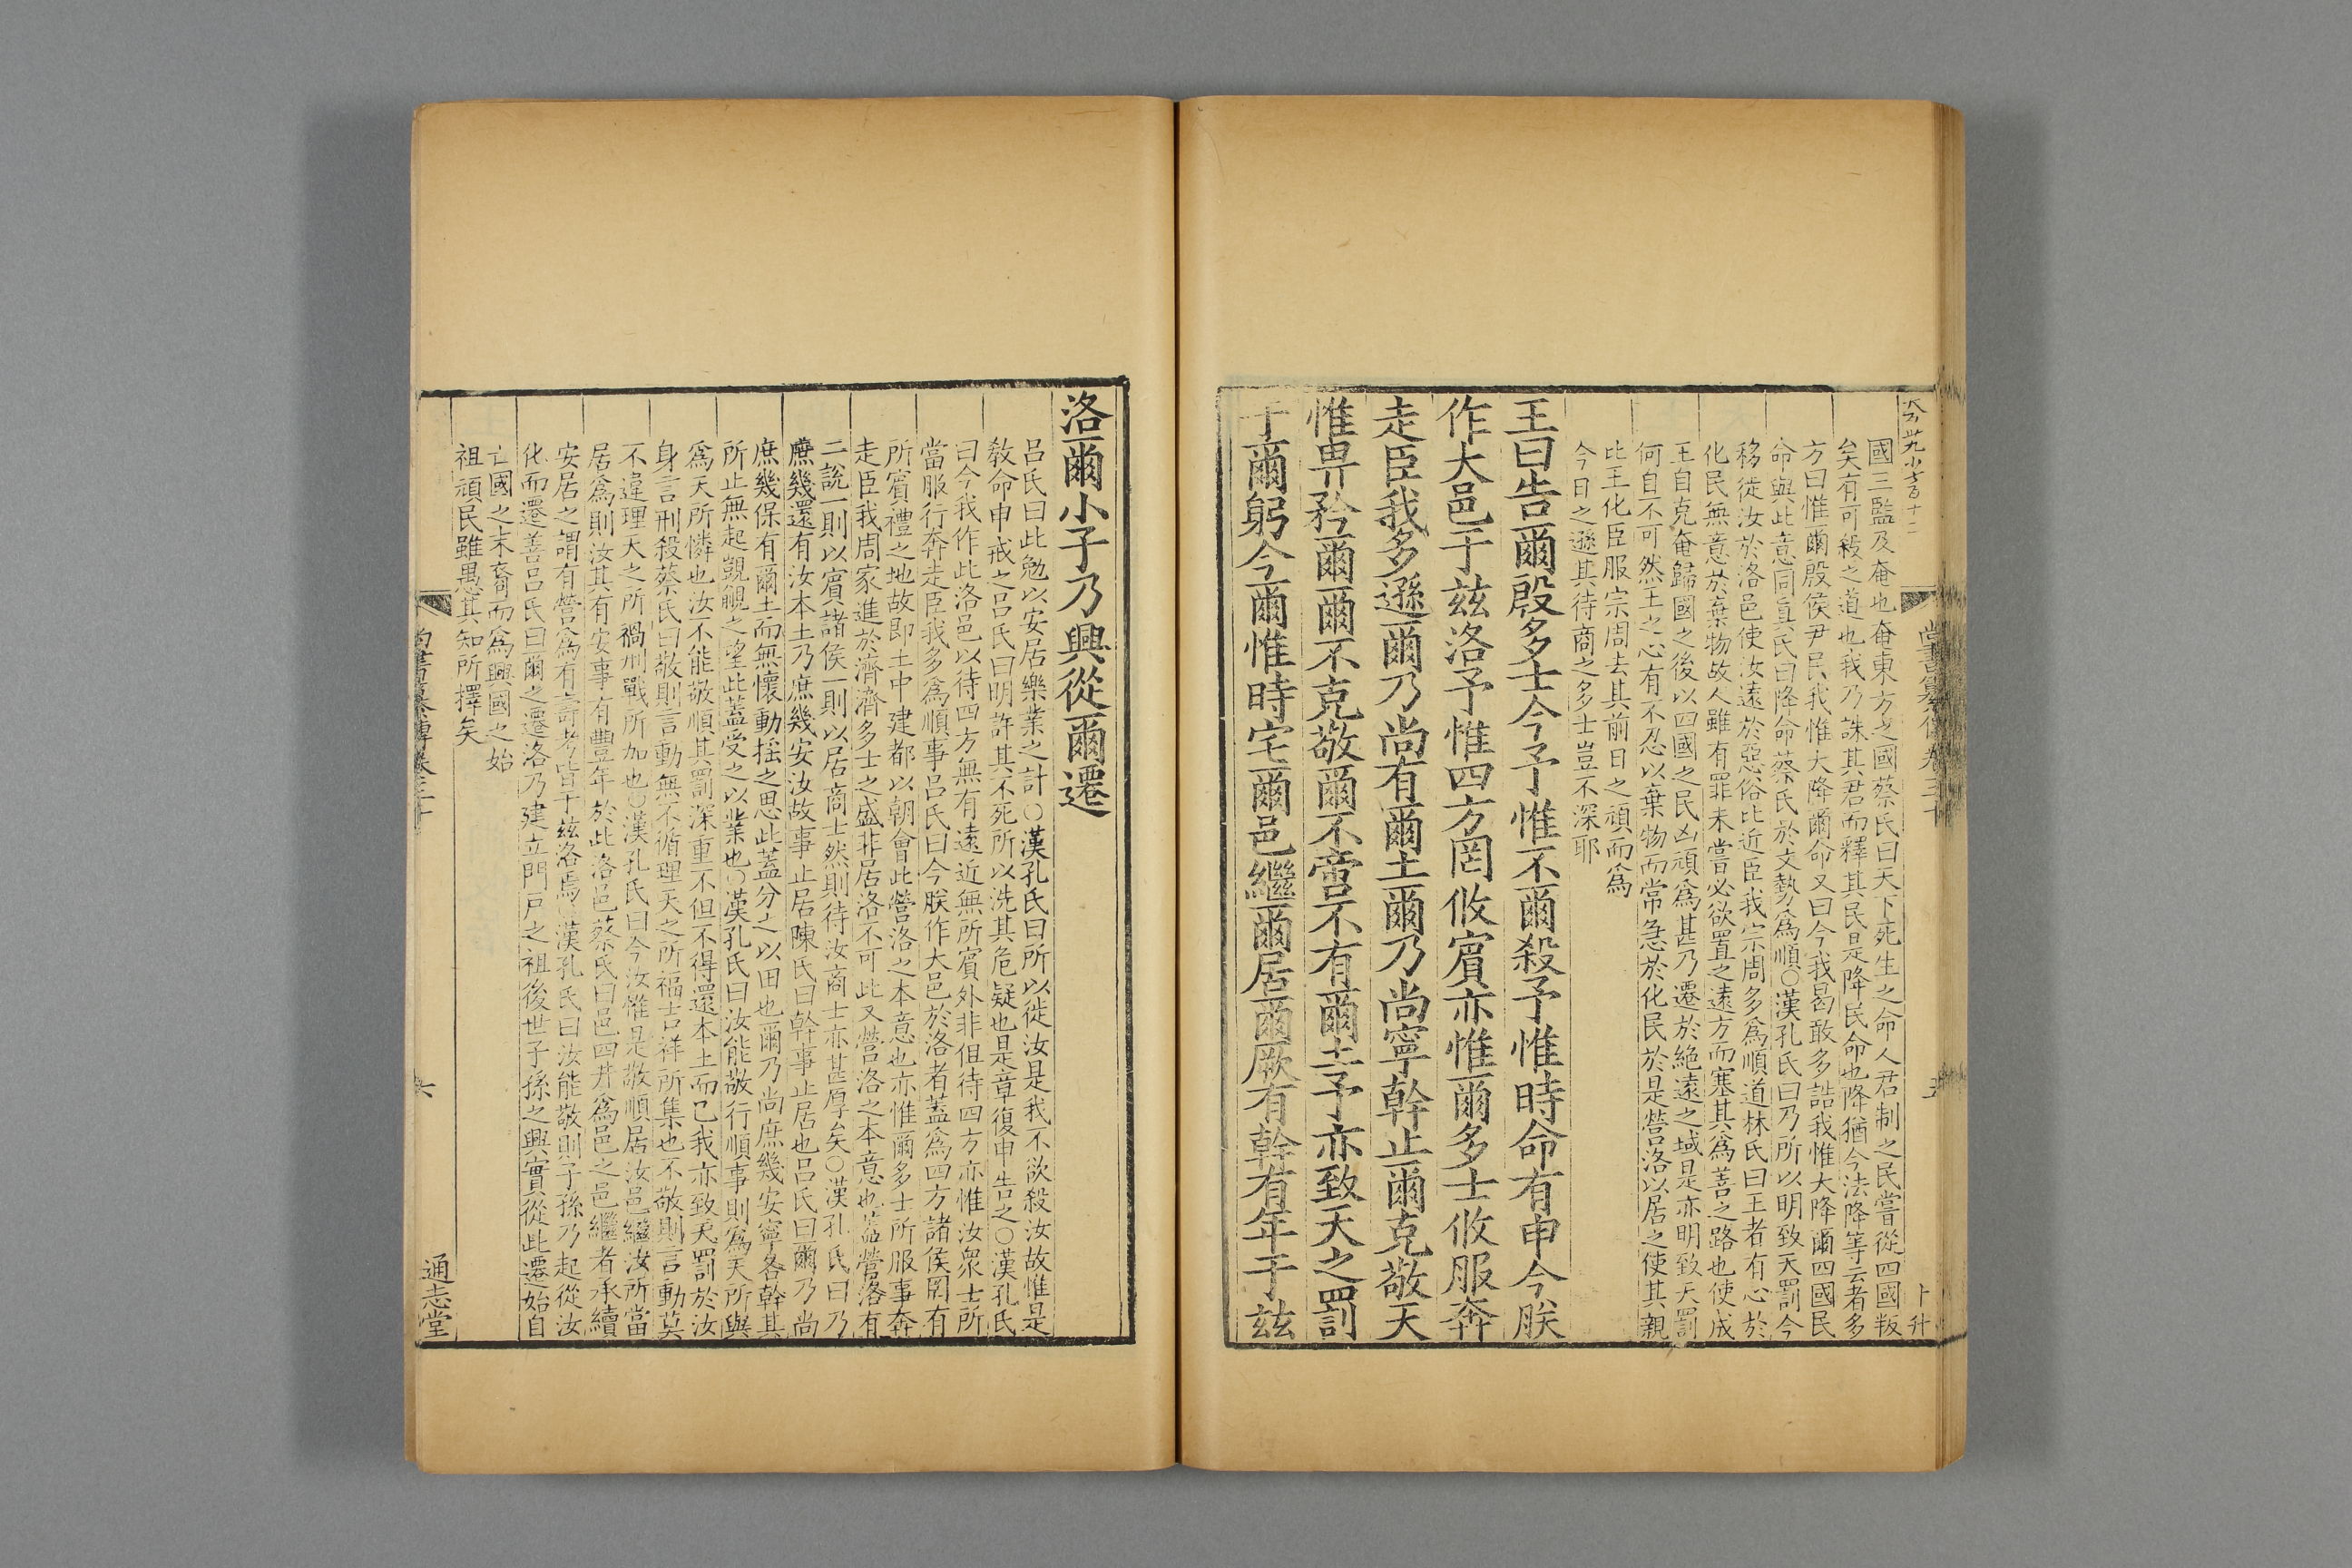 國三監及奄也奄東方之國蔡氏曰天下死生之命人君制之民嘗從四國叛
矣有可殺之道也我乃誅其君而釋其民是降民命也降猶今法降等云者多
方曰惟爾殷侯尹民我惟大降爾命又曰今我曷敢多誥我惟大降爾四國民
命與此意同真氏曰降命蔡氏於文勢爲順○漢孔氏曰乃所以明致天罰今
移徙汝於洛邑使汝遠於惡俗比近臣我宗周多爲順道林氏曰王者有心於
化民無意於棄物故人雖有罪未嘗必欲置之遠方而塞其爲善之路也使成
王自克奄歸國之後以四國之民凶頑爲甚乃遷於絶遠之域是亦明致天罰
何自不可然王之心有不忍以棄物而常急於化民於是營洛以居之使其親
比王化臣服宗周去其前日之頑而爲
今日之遜其待商之多士豈不深耶
王曰告爾殷多士今予惟不爾殺予惟時命有申今朕
作大邑于兹洛予惟四方罔攸賓亦惟爾多士攸服奔
走臣我多遜爾乃尚有爾土爾乃尚寧幹止爾克敬天
惟畀矜爾爾不克敬爾不啻不有爾土予亦致天之罰
于爾躬今爾惟時宅爾邑繼爾居爾厥有幹有年于兹
洛爾小子乃興從爾遷
呂氏曰此勉以安居樂業之計○漢孔氏曰所以徙汝是我不欲殺汝故惟是
敎命申戒之呂氏曰明許其不死所以洗其危疑也是章復申告之○漢孔氏
曰今我作此洛邑以待四方無有遠近無所賓外非但待四方亦惟汝衆士所
當服行奔走臣我多爲順事呂氏曰今朕作大邑於洛者蓋爲四方諸侯罔有
所賓禮之地故即土中建都以朝會此營洛之本意也亦惟爾多士所服事奔
走臣我周家進於濟濟多士之盛非居洛不可此又營洛之本意也蓋營洛有
二說一則以賓諸侯一則以居商士然則待汝商士亦甚厚矣○漢孔氏曰乃
庶幾還有汝本土乃庶幾安汝故事止居陳氏曰幹事止居也呂氏曰爾乃尚
庶幾保有爾土而無懷動搖之思此蓋分之以田也爾乃尚庶幾安寧各幹其
所止無起覬覦之望此蓋受之以業也○漢孔氏曰汝能敬行順事則爲天所與
爲天所憐也汝不能敬順其罰深重不但不得還本土而已我亦致天罰於汝
身言刑殺蔡氏曰敬則言動無不循理天之所福吉祥所集也不敬則言動莫
不違理天之所禍刑戮所加也○漢孔氏曰今汝惟是敬順居汝邑繼汝所當
居爲則汝其有安事有豐年於此洛邑蔡氏曰邑四井爲邑之邑繼者承續
安居之謂有營爲有壽考皆于兹洛焉○漢孔氏曰汝能敬則子孫乃起從汝
化而遷善呂氏曰爾之遷洛乃建立門戸之祖後世子孫之興實從此遷始自
亡國之末裔而爲興國之始
祖頑民雖愚其知所擇矣
尚書纂傳卷三十
六
通志堂